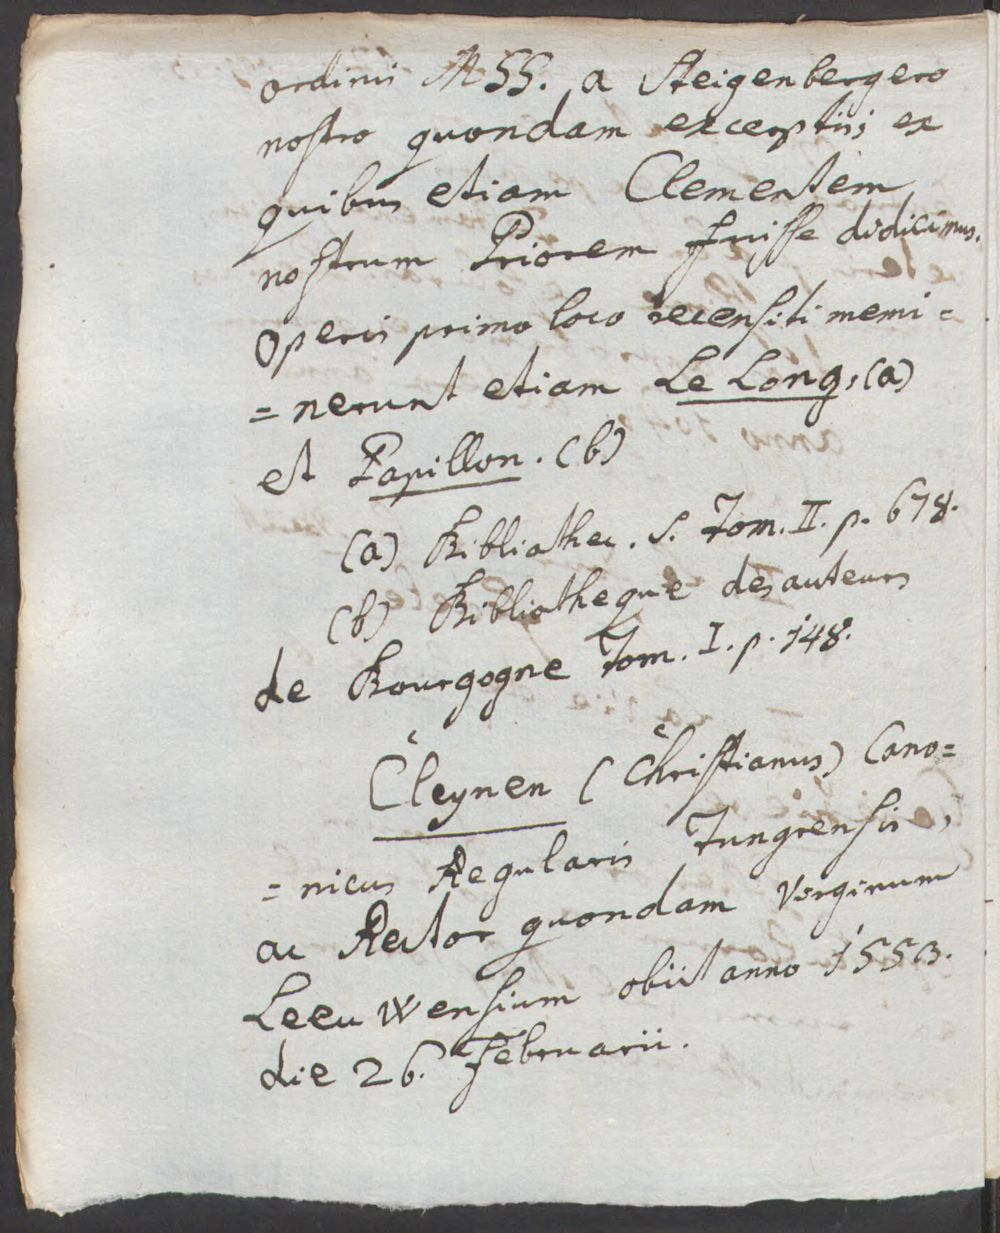 ordinis MSS. a Steigenbergero
nostro quondam exceptis; ex
quibus etiam Clementem
nostrum Priorem fuisse didicimus.
Operis primo loco recensiti memi=
=nerunt etiam Le Long, (a)
et Papillon. (b)
(a) Bibliothec. S. Tom. II. p. 678.
(b) Bibliotheque des auteurs
de Bourgogne Tom. I. p. 148.
Cleynen (Christianus) Cano=
=nicus Regularis Tungrensis,
ac Rector quondam Virginum
Leeuwensium obiit anno 1553.
die 26. Februarii.